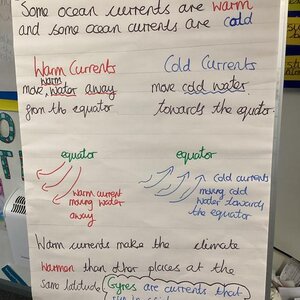 Some ocean currents are warm
and some ocean currents are cold
Warm Currents
move warm water away
from the equator.
Cold Currents
move cold water
towards the equator.
equator
warm current
moving water
away
equator
cold currents
moving cold
water towards
the equator
Warm currents make the climate
warmer than other places at the
same latitude.
Gyres are currents that